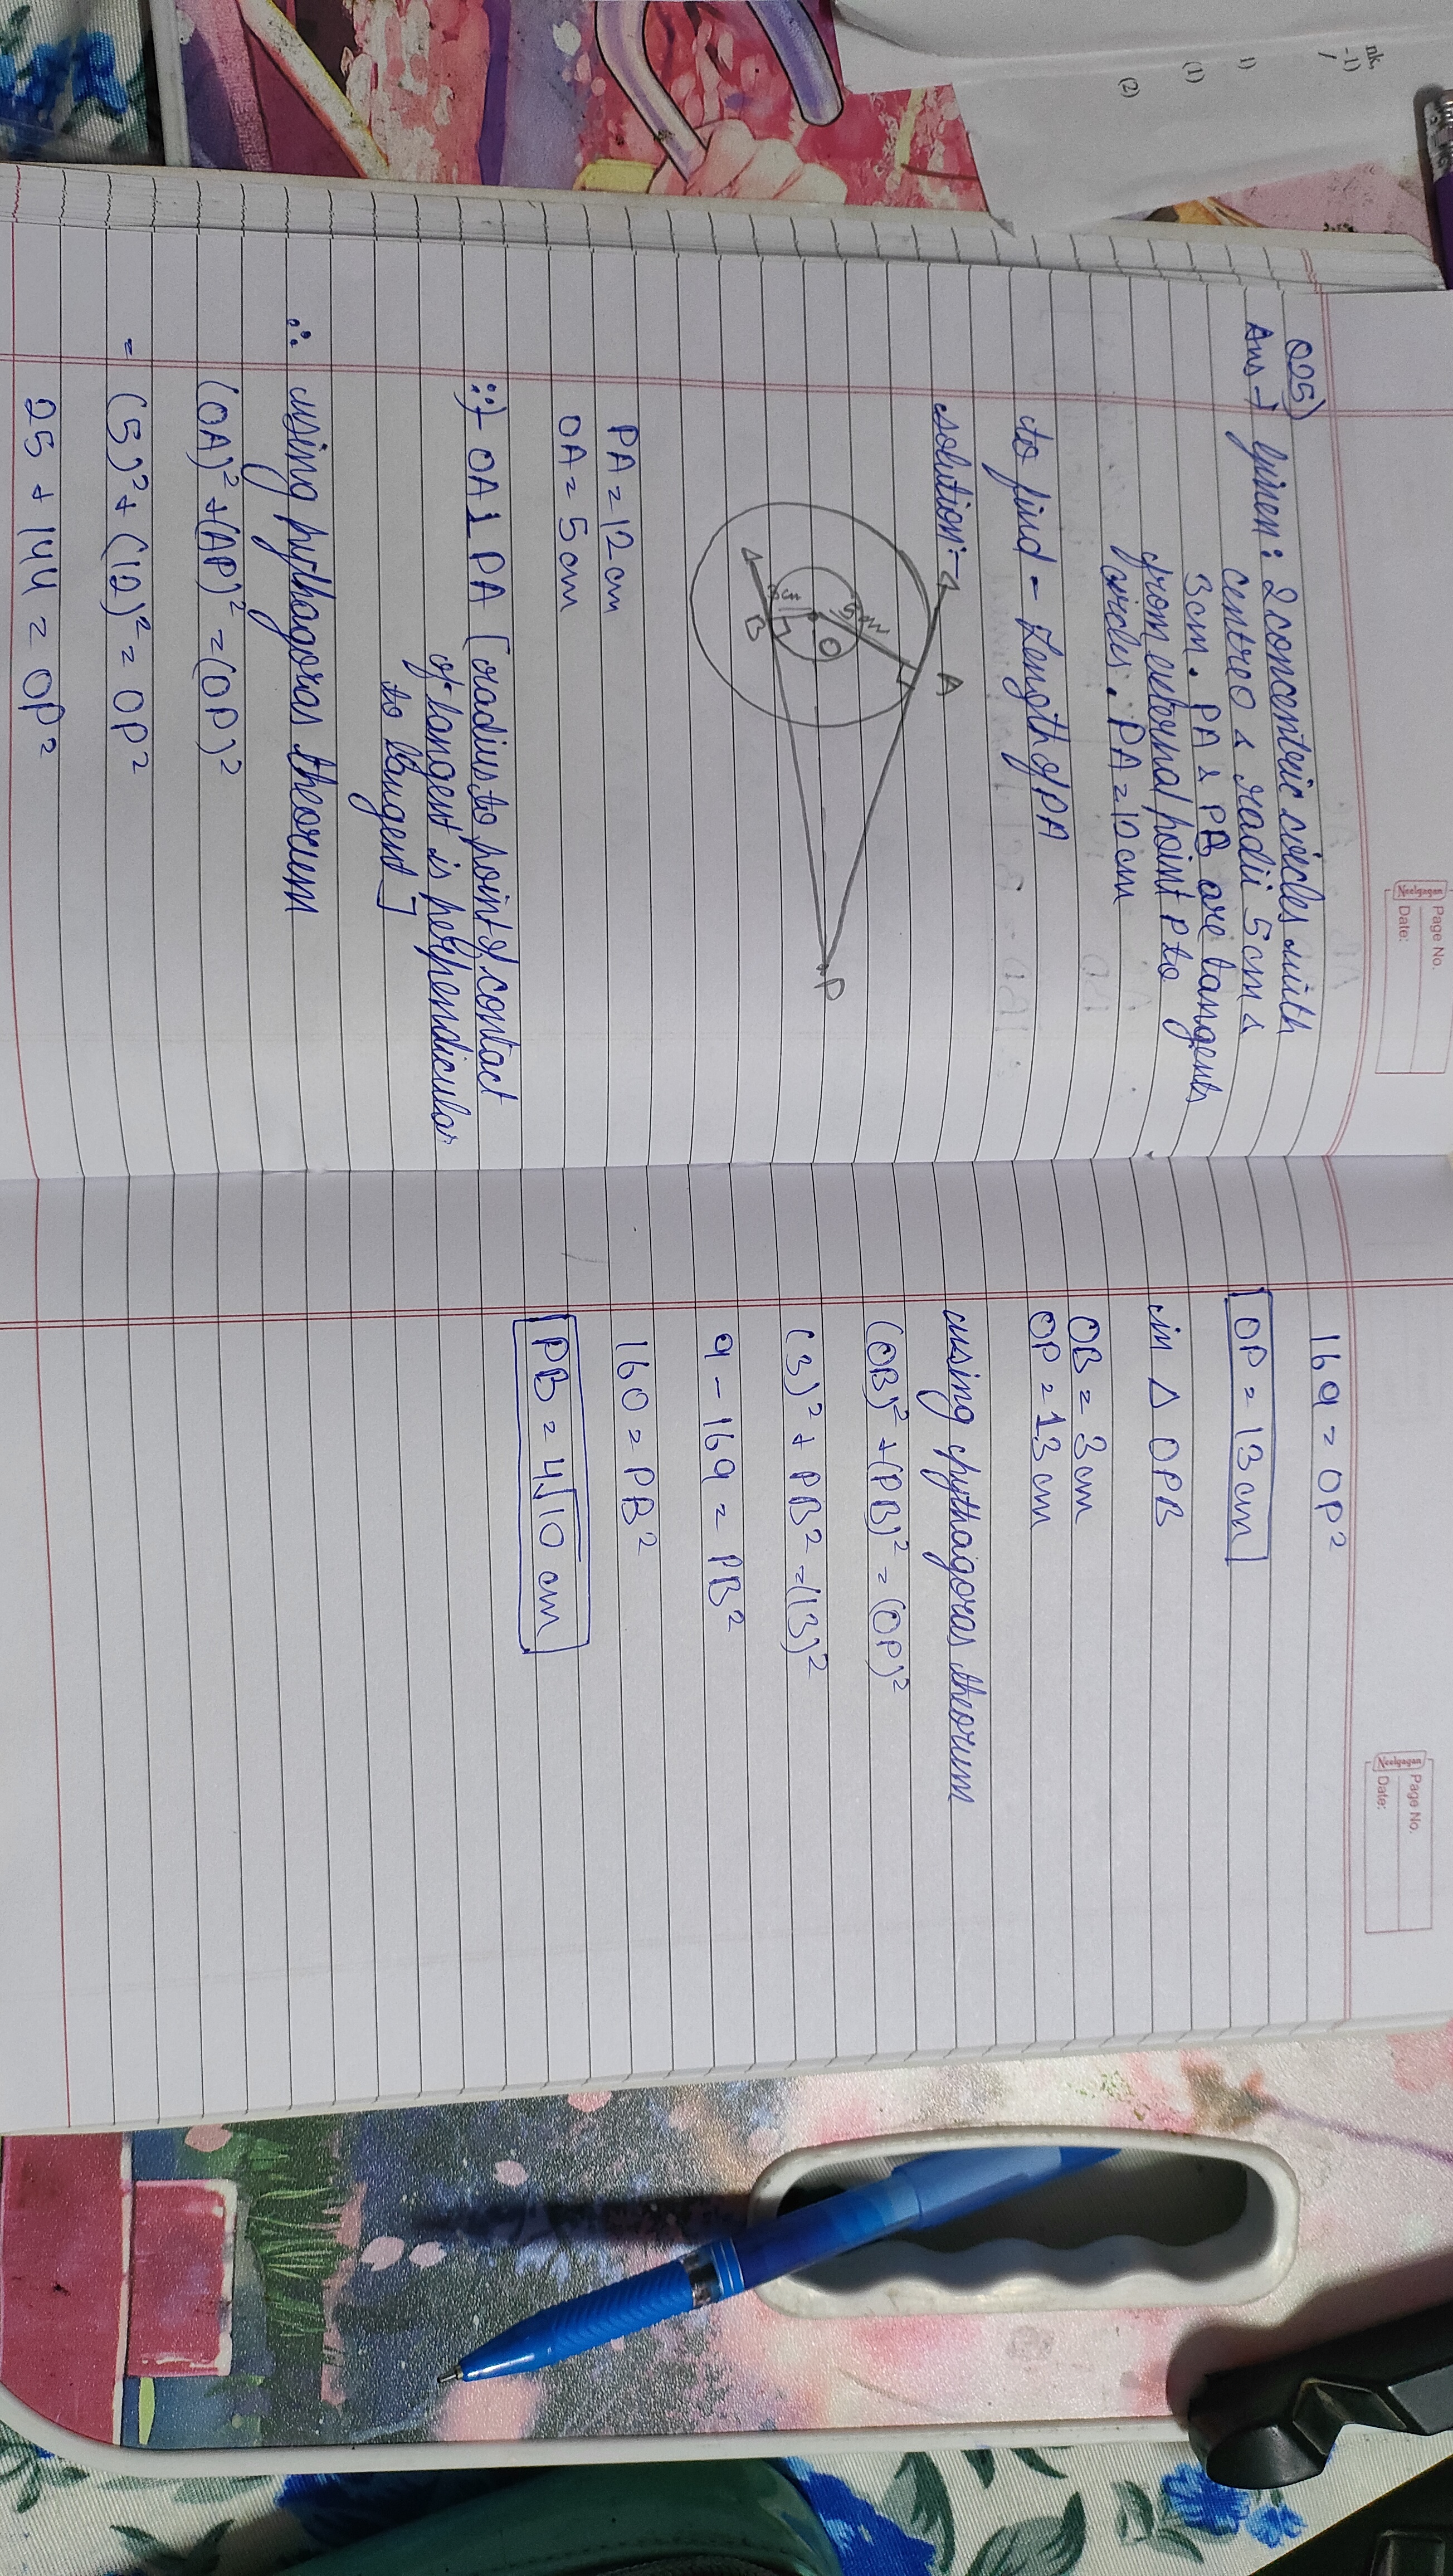 nk,
-1)
1)
(1)
(2)
Neelgagan
Page No.
Date:
Q25)
Ans → given: 2 concentric circles with
centre O & radii 5cm &
3cm. PA & PB are tangents
from external point P to
circles. PA = 10 cm
to find = Length of PA
solution:-
A
5cm
O
3cm
B
P
PA = 12 cm
OA = 5 cm
OA ⊥ PA [radius to point of contact
of tangent is perpendicular
to tangent]
∴ using pythagoras theorum
(OA)² + (AP)² = (OP)²
= (5)² + (12)² = OP²
25 + 144 = OP²
Neelgagan
Page No.
Date:
169 = OP²
OP = 13 cm
in △ OPB
OB = 3 cm
OP = 13 cm
using pythagoras theorum
(OB)² + (PB)² = (OP)²
(3)² + PB² = (13)²
9 - 169 = PB²
160 = PB²
PB = 4√10 cm